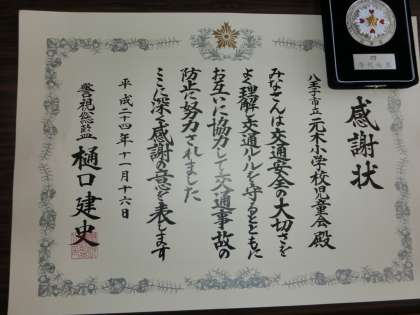 感謝状
八王子市立元木小学校児童会殿
みなさんは交通安全の大切さを
よく理解し交通ルールを守るとともに
お互いに協力して交通事故の
防止に努力されました
ここに深く感謝の意を表します
平成二十四年十一月十六日
警視総監 樋口建史